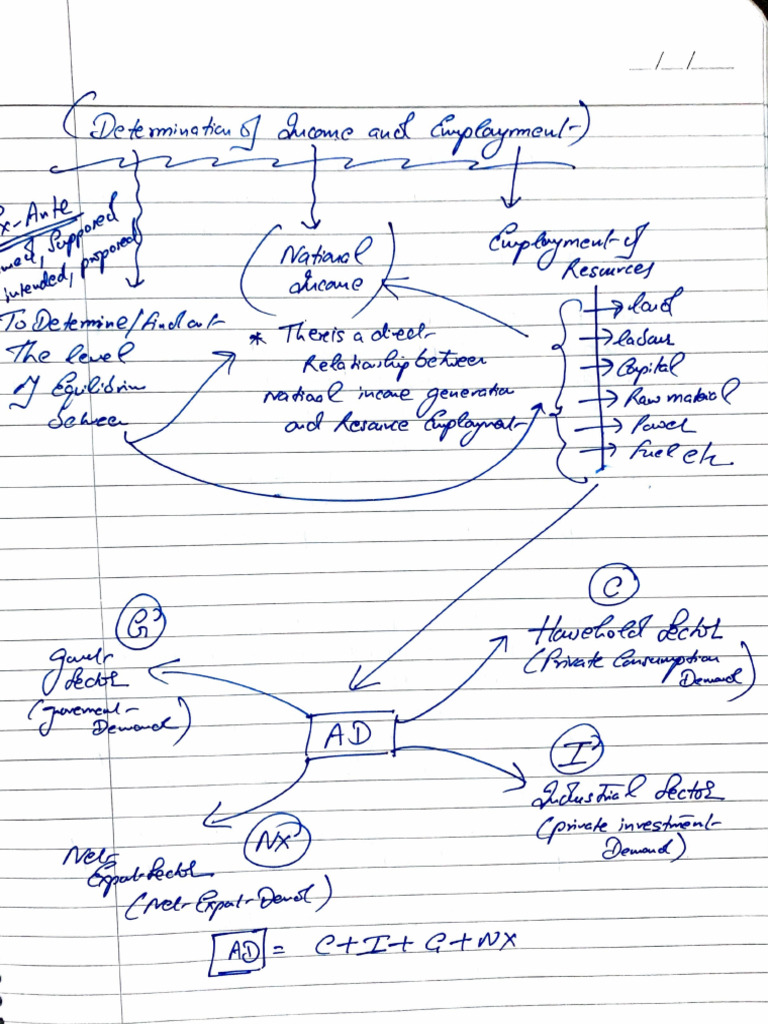 (Determination of Income and Employment)
x-Ante
med, Supposed
intended, proposed
To Determine/find out
The level
of Equilibrium
between
(National
Income)
* There is a direct
Relationship between
National income generation
and Resource Employment
Employment of
Resources
→ land
→ labour
→ Capital
→ Raw material
→ Power
→ Fuel etc.
C
Household Sector
(Private Consumption
Demand)
G
Govt
Sector
(Government
Demand)
AD
I
Industrial Sector
(private investment
Demand)
NX
Net
Export Sector
(Net Export Demand)
AD = C+I+G+NX